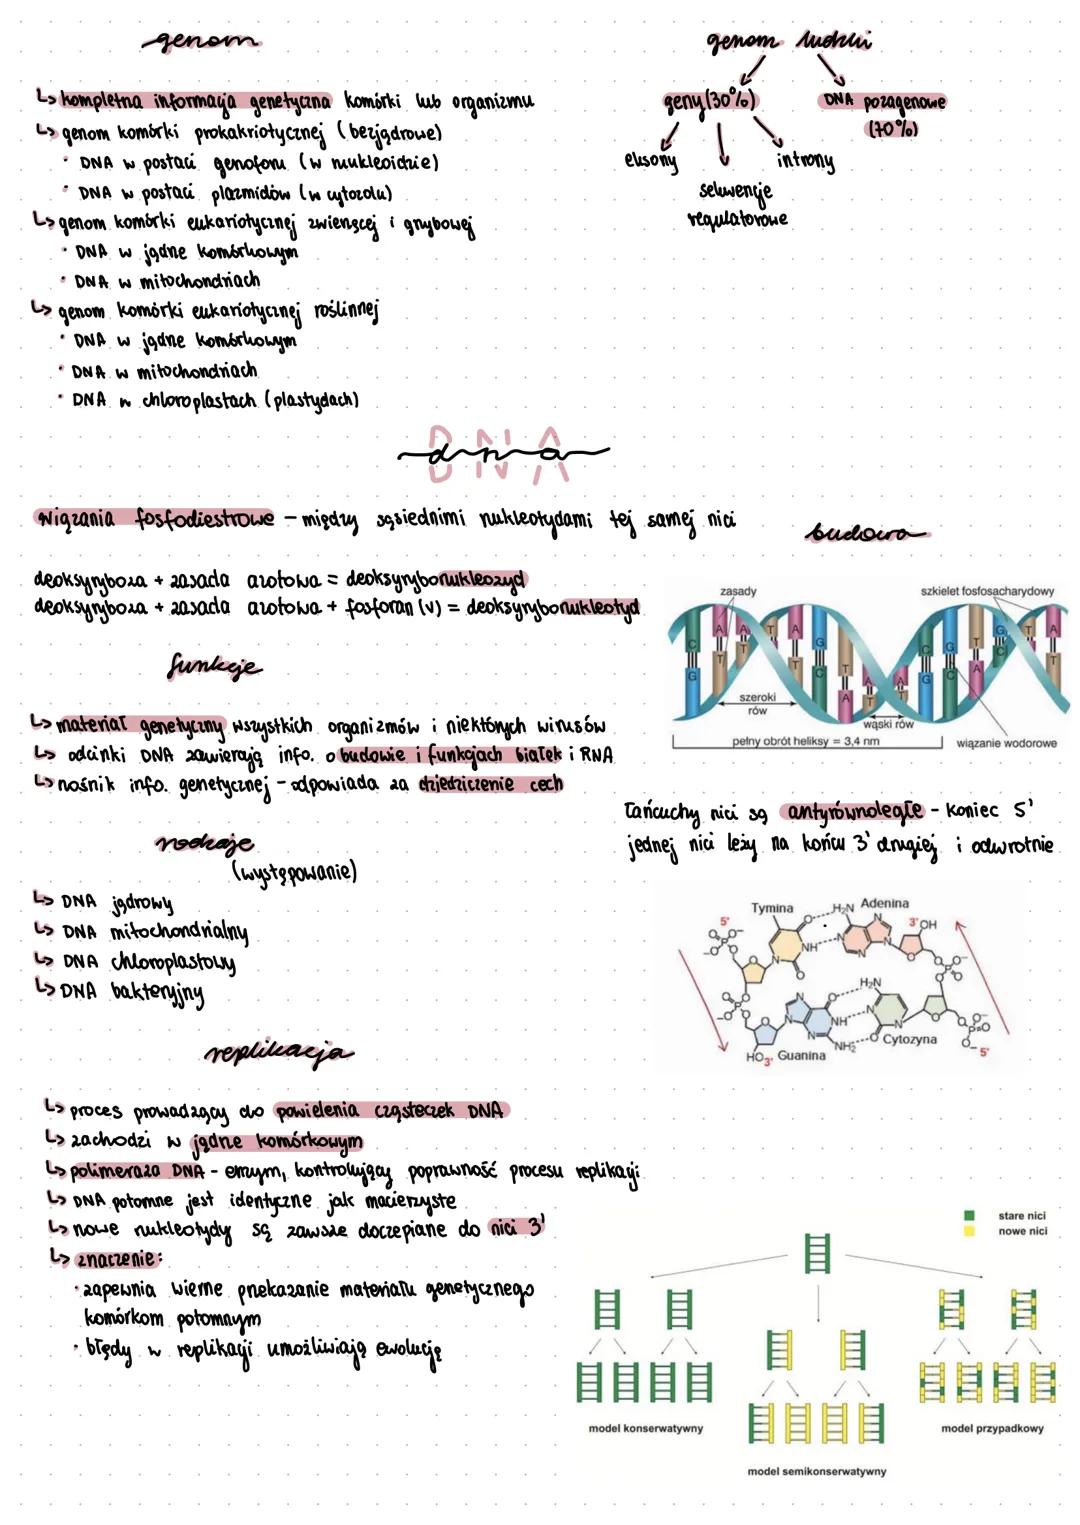 genom
↳ kompletna informacja genetyczna komórki lub organizmu
↳ genom komórki prokakriotycznej (bezjądrowe)
• DNA w postaci genoforu (w nukleoidzie)
• DNA w postaci plazmidów (w cytozolu)
↳ genom komórki eukariotycznej zwierzęcej i grzybowej
• DNA w jądrze komórkowym
• DNA w mitochondriach
↳ genom komórki eukariotycznej roślinnej
• DNA w jądrze komórkowym
• DNA w mitochondriach
• DNA w chloroplastach (plastydach)
genom ludzki
geny (30%)
DNA pozagenowe
(70%)
eksony
introny
sekwencje
regulatorowe
DNA
dna
wiązania fosfodiestrowe - między sąsiednimi nukleotydami tej samej nici
deoksyryboza + zasada azotowa = deoksyrybonukleozyd
deoksyryboza + zasada azotowa + fosforan (v) = deoksyrybonukleotyd
funkcje
↳ materiał genetyczny wszystkich organizmów i niektórych wirusów
↳ odcinki DNA zawierają info. o budowie i funkcjach białek i RNA
↳ nośnik info. genetycznej - odpowiada za dziedziczenie cech
rodzaje
(występowanie)
↳ DNA jądrowy
↳ DNA mitochondrialny
↳ DNA chloroplastowy
↳ DNA bakteryjny
budowa
zasady
szkielet fosfosacharydowy
C G A T A T T A A T G C T A A T A A C G G C T A G C T A T
szeroki
rów
wąski rów
pełny obrót heliksy = 3,4 nm
wiązanie wodorowe
Łańcuchy nici są antyrównoległe - koniec 5'
jednej nici leży na końcu 3' drugiej i odwrotnie
Tymina
Adenina
5'
3' OH
H₂N
NH
N
O
P
H₂N
NH
NH₂
HO 3'
Guanina
Cytozyna
5'
replikacja
↳ proces prowadzący do powielenia cząsteczek DNA
↳ zachodzi w jądrze komórkowym
↳ polimeraza DNA - enzym, kontrolujący poprawność procesu replikacji
↳ DNA potomne jest identyczne jak macierzyste
↳ nowe nukleotydy są zawsze doczepiane do nici 3'
↳ znaczenie:
• zapewnia wierne przekazanie materiału genetycznego
komórkom potomnym
• błędy w replikacji umożliwiają ewolucję
stare nici
nowe nici
model konserwatywny
model semikonserwatywny
model przypadkowy